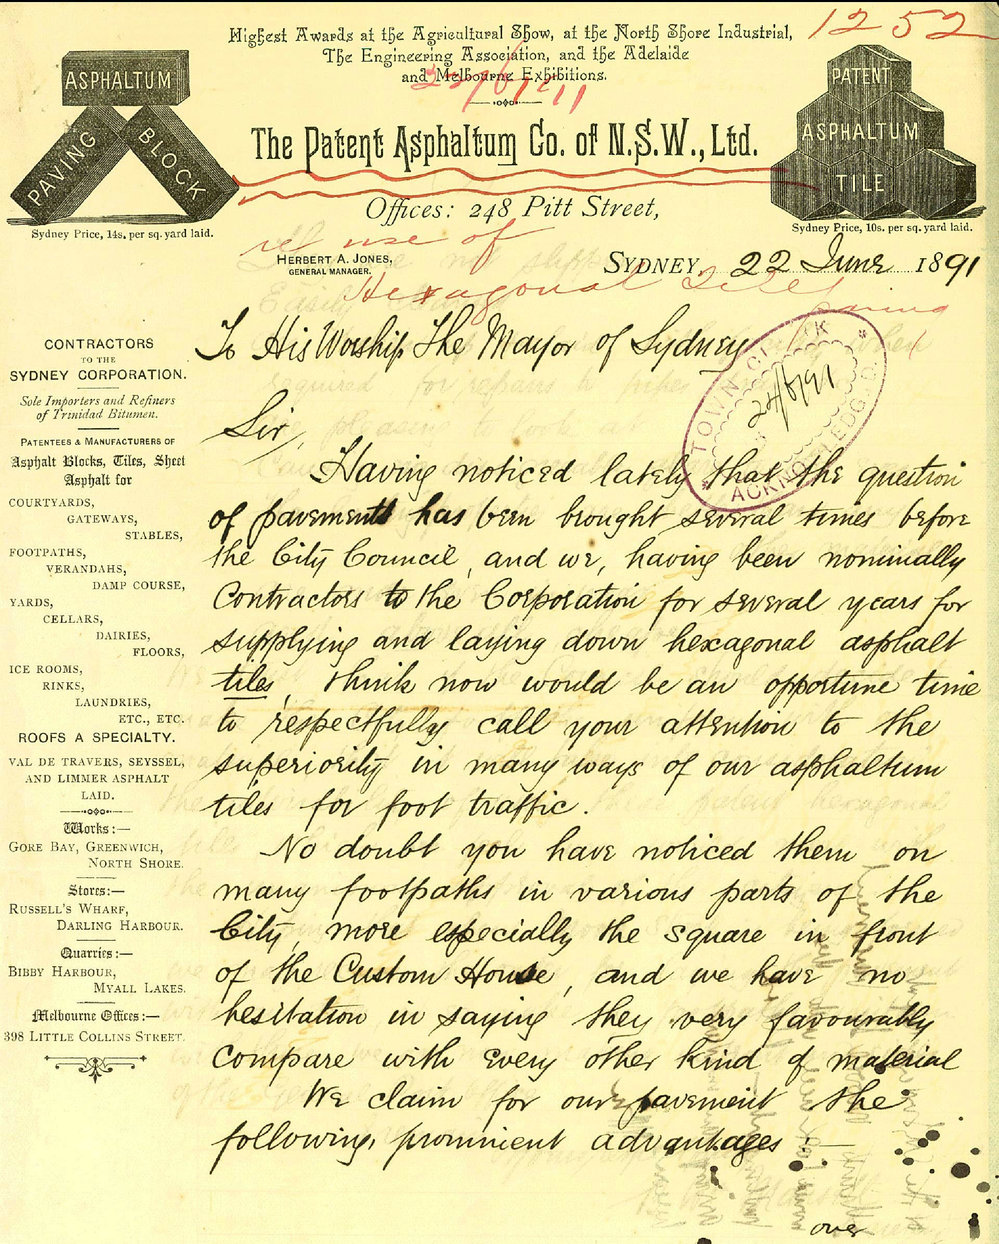 1252
Highest Awards at the Agricultural Show, at the North Shore Industrial,
The Engineering Association, and the Adelaide
and Melbourne Exhibitions.
ASPHALTUM
PAVING
BLOCK
Sydney Price, 14s. per sq. yard laid.
The Patent Asphaltum Co. of N.S.W., Ltd.
PATENT
ASPHALTUM
TILE
Sydney Price, 10s. per sq. yard laid.
Offices: 248 Pitt Street,
HERBERT A. JONES,
GENERAL MANAGER.
SYDNEY, 22 June 1891
re use of
Hexagonal Tiles
paving
CONTRACTORS
TO THE
SYDNEY CORPORATION.
Sole Importers and Refiners
of Trinidad Bitumen.
PATENTEES & MANUFACTURERS OF
Asphalt Blocks, Tiles, Sheet
Asphalt for
COURTYARDS,
GATEWAYS,
STABLES,
FOOTPATHS,
VERANDAHS,
DAMP COURSE,
YARDS,
CELLARS,
DAIRIES,
FLOORS,
ICE ROOMS,
RINKS,
LAUNDRIES,
ETC., ETC.
ROOFS A SPECIALTY.
VAL DE TRAVERS, SEYSSEL,
AND LIMMER ASPHALT
LAID.
Works:—
GORE BAY, GREENWICH,
NORTH SHORE.
Stores:—
RUSSELL'S WHARF,
DARLING HARBOUR.
Quarries:—
BIBBY HARBOUR,
MYALL LAKES.
Melbourne Offices:—
398 LITTLE COLLINS STREET.
To His Worship The Mayor of Sydney
TOWN CLERK
24/6/91
ACKNOWLEDGED
Sir,
Having noticed lately that the question
of pavements has been brought several times before
the City Council, and we, having been nominally
Contractors to the Corporation for several years for
supplying and laying down hexagonal asphalt
tiles, think now would be an opportune time
to respectfully call your attention to the
superiority in many ways of our asphaltum
tiles for foot traffic.
No doubt you have noticed them on
many footpaths in various parts of the
City, more especially the square in front
of the Custom House, and we have no
hesitation in saying they very favourably
compare with every other kind of material
We claim for our pavement the
following prominent advantages:—
over